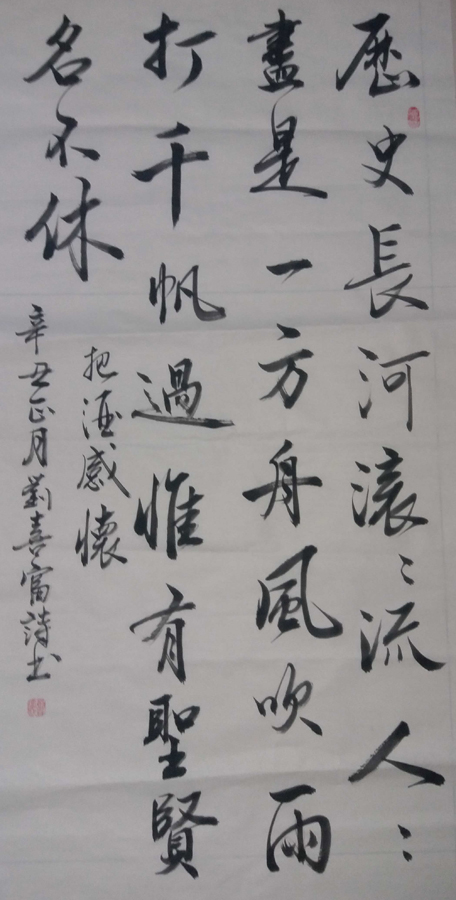 歷史長河滾〻流人〻
盡是一方舟風吹雨
打千帆過惟有聖賢
名不休
把酒感懷
辛丑正月劉喜富詩書